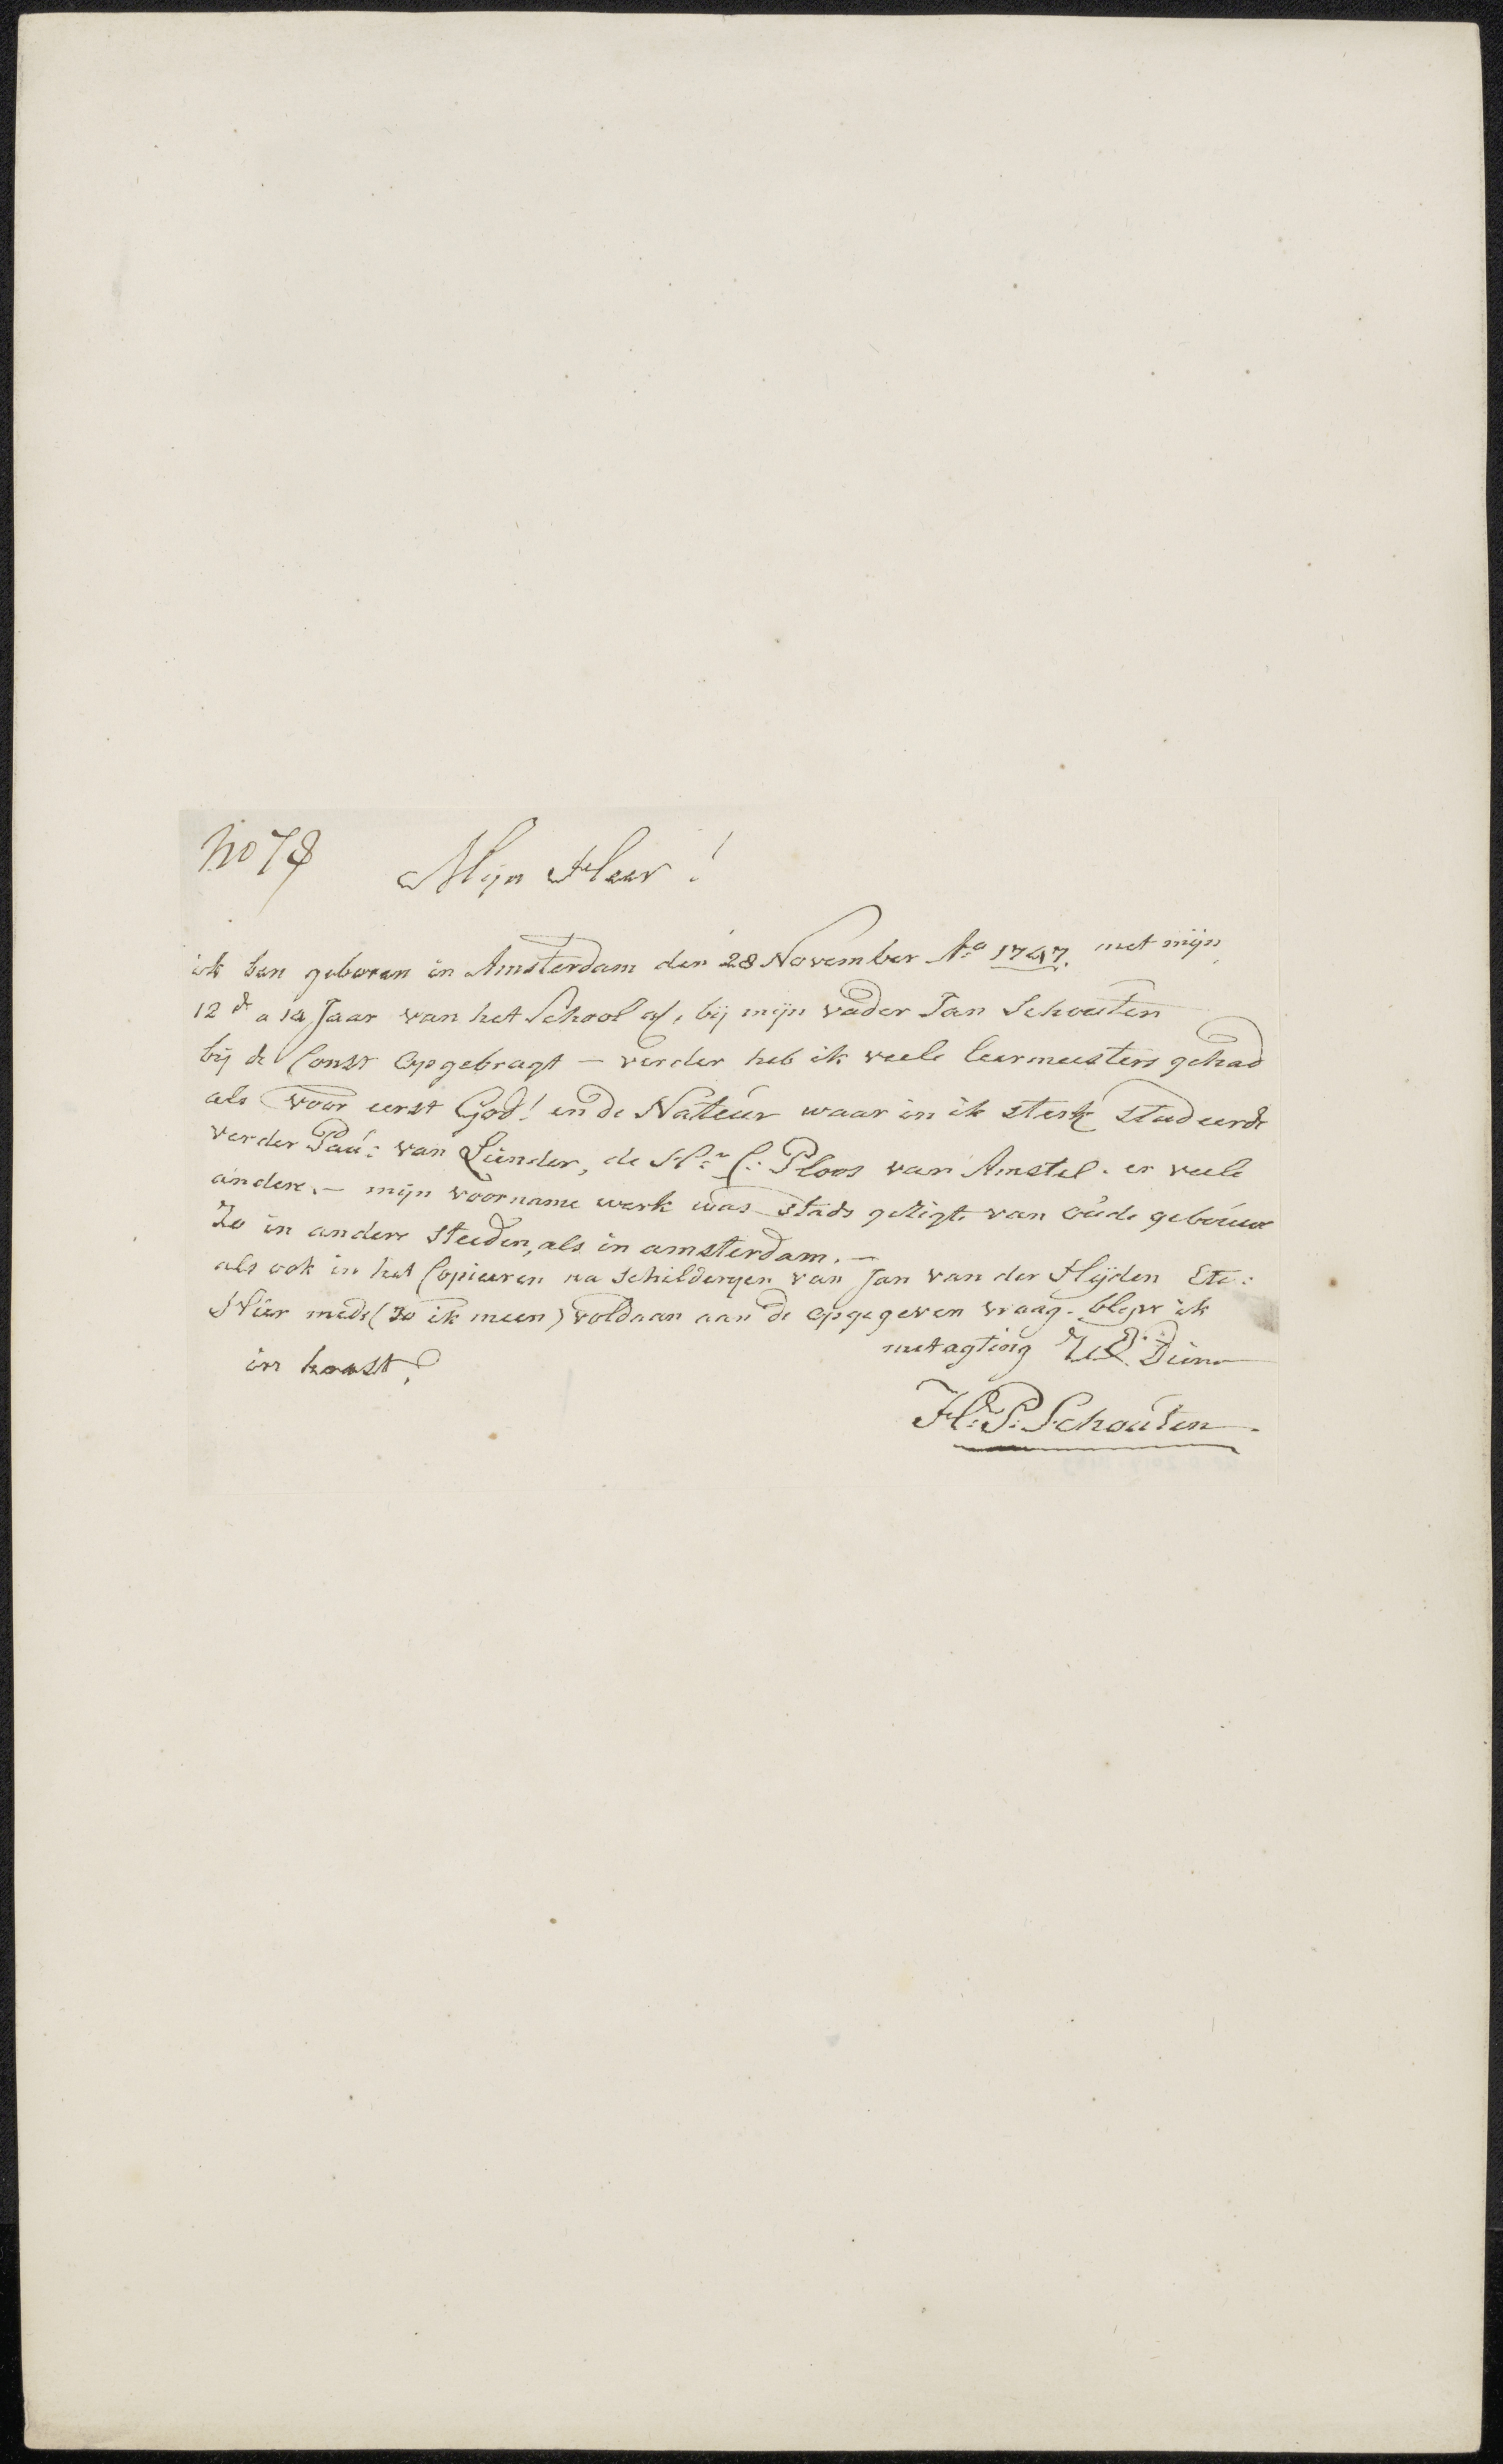 No 78
Mijn Heer!
ik ben geboren in Amsterdam den 28 November Ao 1747. met mijn
12de a 14 Jaar van het School af, bij mijn vader Jan Schouten
bij de Const opgebragt — verder heb ik veele leermeesters gehad
als voor eerst God! en de Natuur waar in ik sterk studeerde
verder Pau: van Liender, de Hr C: Ploos van Amstel. en veele
andere. — mijn voorname werk was stads gezigte van oude gebouw
Zo in andere steeden, als in amsterdam. —
als ook in het Copieeren na schilderyen van Jan van der Hijden Etc:
Hier mede (zo ik meen) voldaan aan de opgegeven vraag. blyve ik
met agting UE: Dien
in haast,
H: P: Schouten